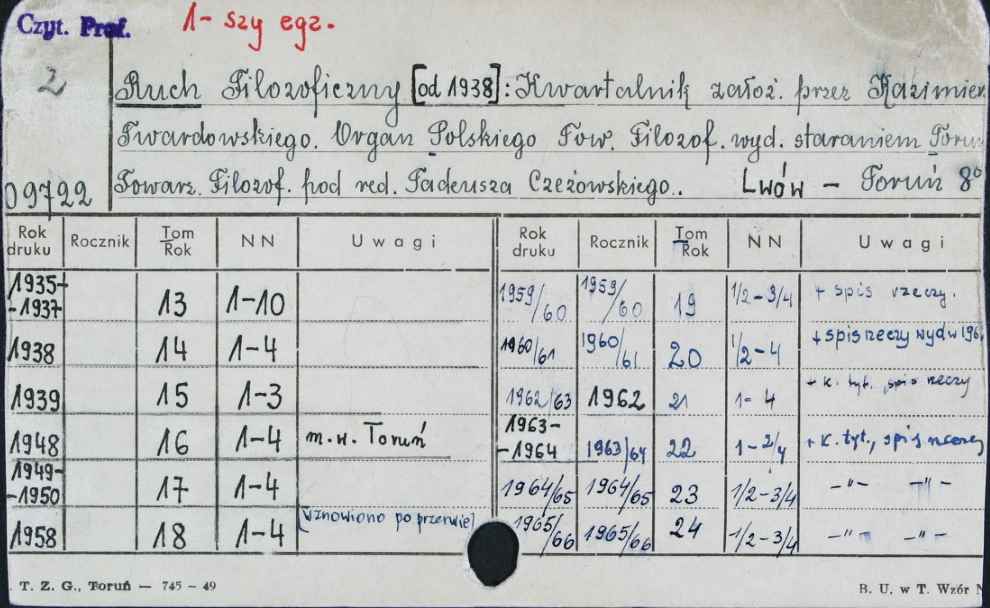 Czyt. Prof. 1-szy egz.
2
Ruch Filozoficzny [od 1938]: Kwartalnik założ. przez Kazimier
Twardowskiego. Organ Polskiego Tow. Filozof. wyd. staraniem Toruń
09722 Towarz. Filozof. pod red. Tadeusza Czeżowskiego.. Lwów – Toruń 8°
Rok druku Rocznik Tom Rok NN Uwagi Rok druku Rocznik Tom Rok NN Uwagi
1935–-1937 13 1-10 1959/60 1959/60 19 1/2-3/4 + spis rzeczy.
1938 14 1-4 1960/61 1960/61 20 1/2-4 + spis rzeczy wyd w 196
1939 15 1-3 1962/63 1962 21 1-4 + k. tyt., spis rzeczy
1948 16 1-4 m.w. Toruń 1963–-1964 1963/64 22 1-2/4 + k. tyt., spis rzeczy
1949–-1950 17 1-4 1964/65 1964/65 23 1/2-3/4 –"– –"–
1958 18 1-4 [wznowiono po przerwie] 1965/66 1965/66 24 1/2-3/4 –"– –"–
T. Z. G., Toruń — 745 – 49 B. U. w T. Wzór N